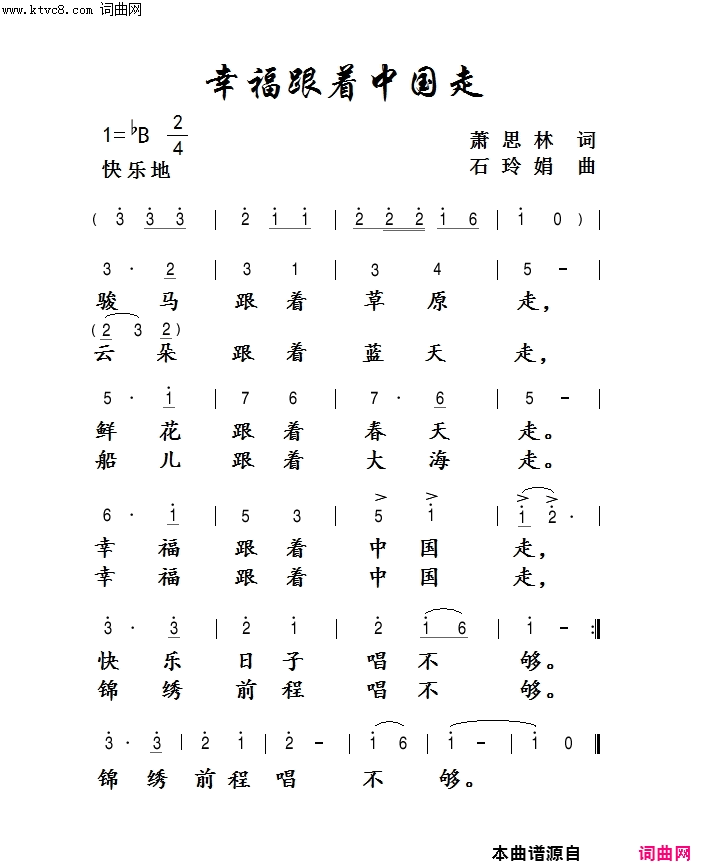 www.ktvc8.com 词曲网
幸福跟着中国走
1=♭B 2/4
萧思林 词
快乐地
石玲娟 曲
( 3̇ 3̇ 3̇ | 2̇ 1̇ 1̇ | 2̇ 2̇ 2̇ 1̇ 6 | 1̇ 0 ) |
3 · 2 | 3 1 | 3 4 | 5 – |
骏马跟着草原走，
( 2 3 2 )
云朵跟着蓝天走，
5 · 1̇ | 7 6 | 7 · 6 | 5 – |
鲜花跟着春天走。
船儿跟着大海走。
6 · 1̇ | 5 3 | 5 1̇ | 1̇ 2̇ · |
幸福跟着中国走，
幸福跟着中国走，
3̇ · 3̇ | 2̇ 1̇ | 2̇ 1̇ 6 | 1̇ – :‖
快乐日子唱不够。
锦绣前程唱不够。
3̇ · 3̇ | 2̇ 1̇ | 2̇ – | 1̇ 6 | 1̇ – | 1̇ 0 ‖
锦绣前程唱不够。
本曲谱源自 词曲网